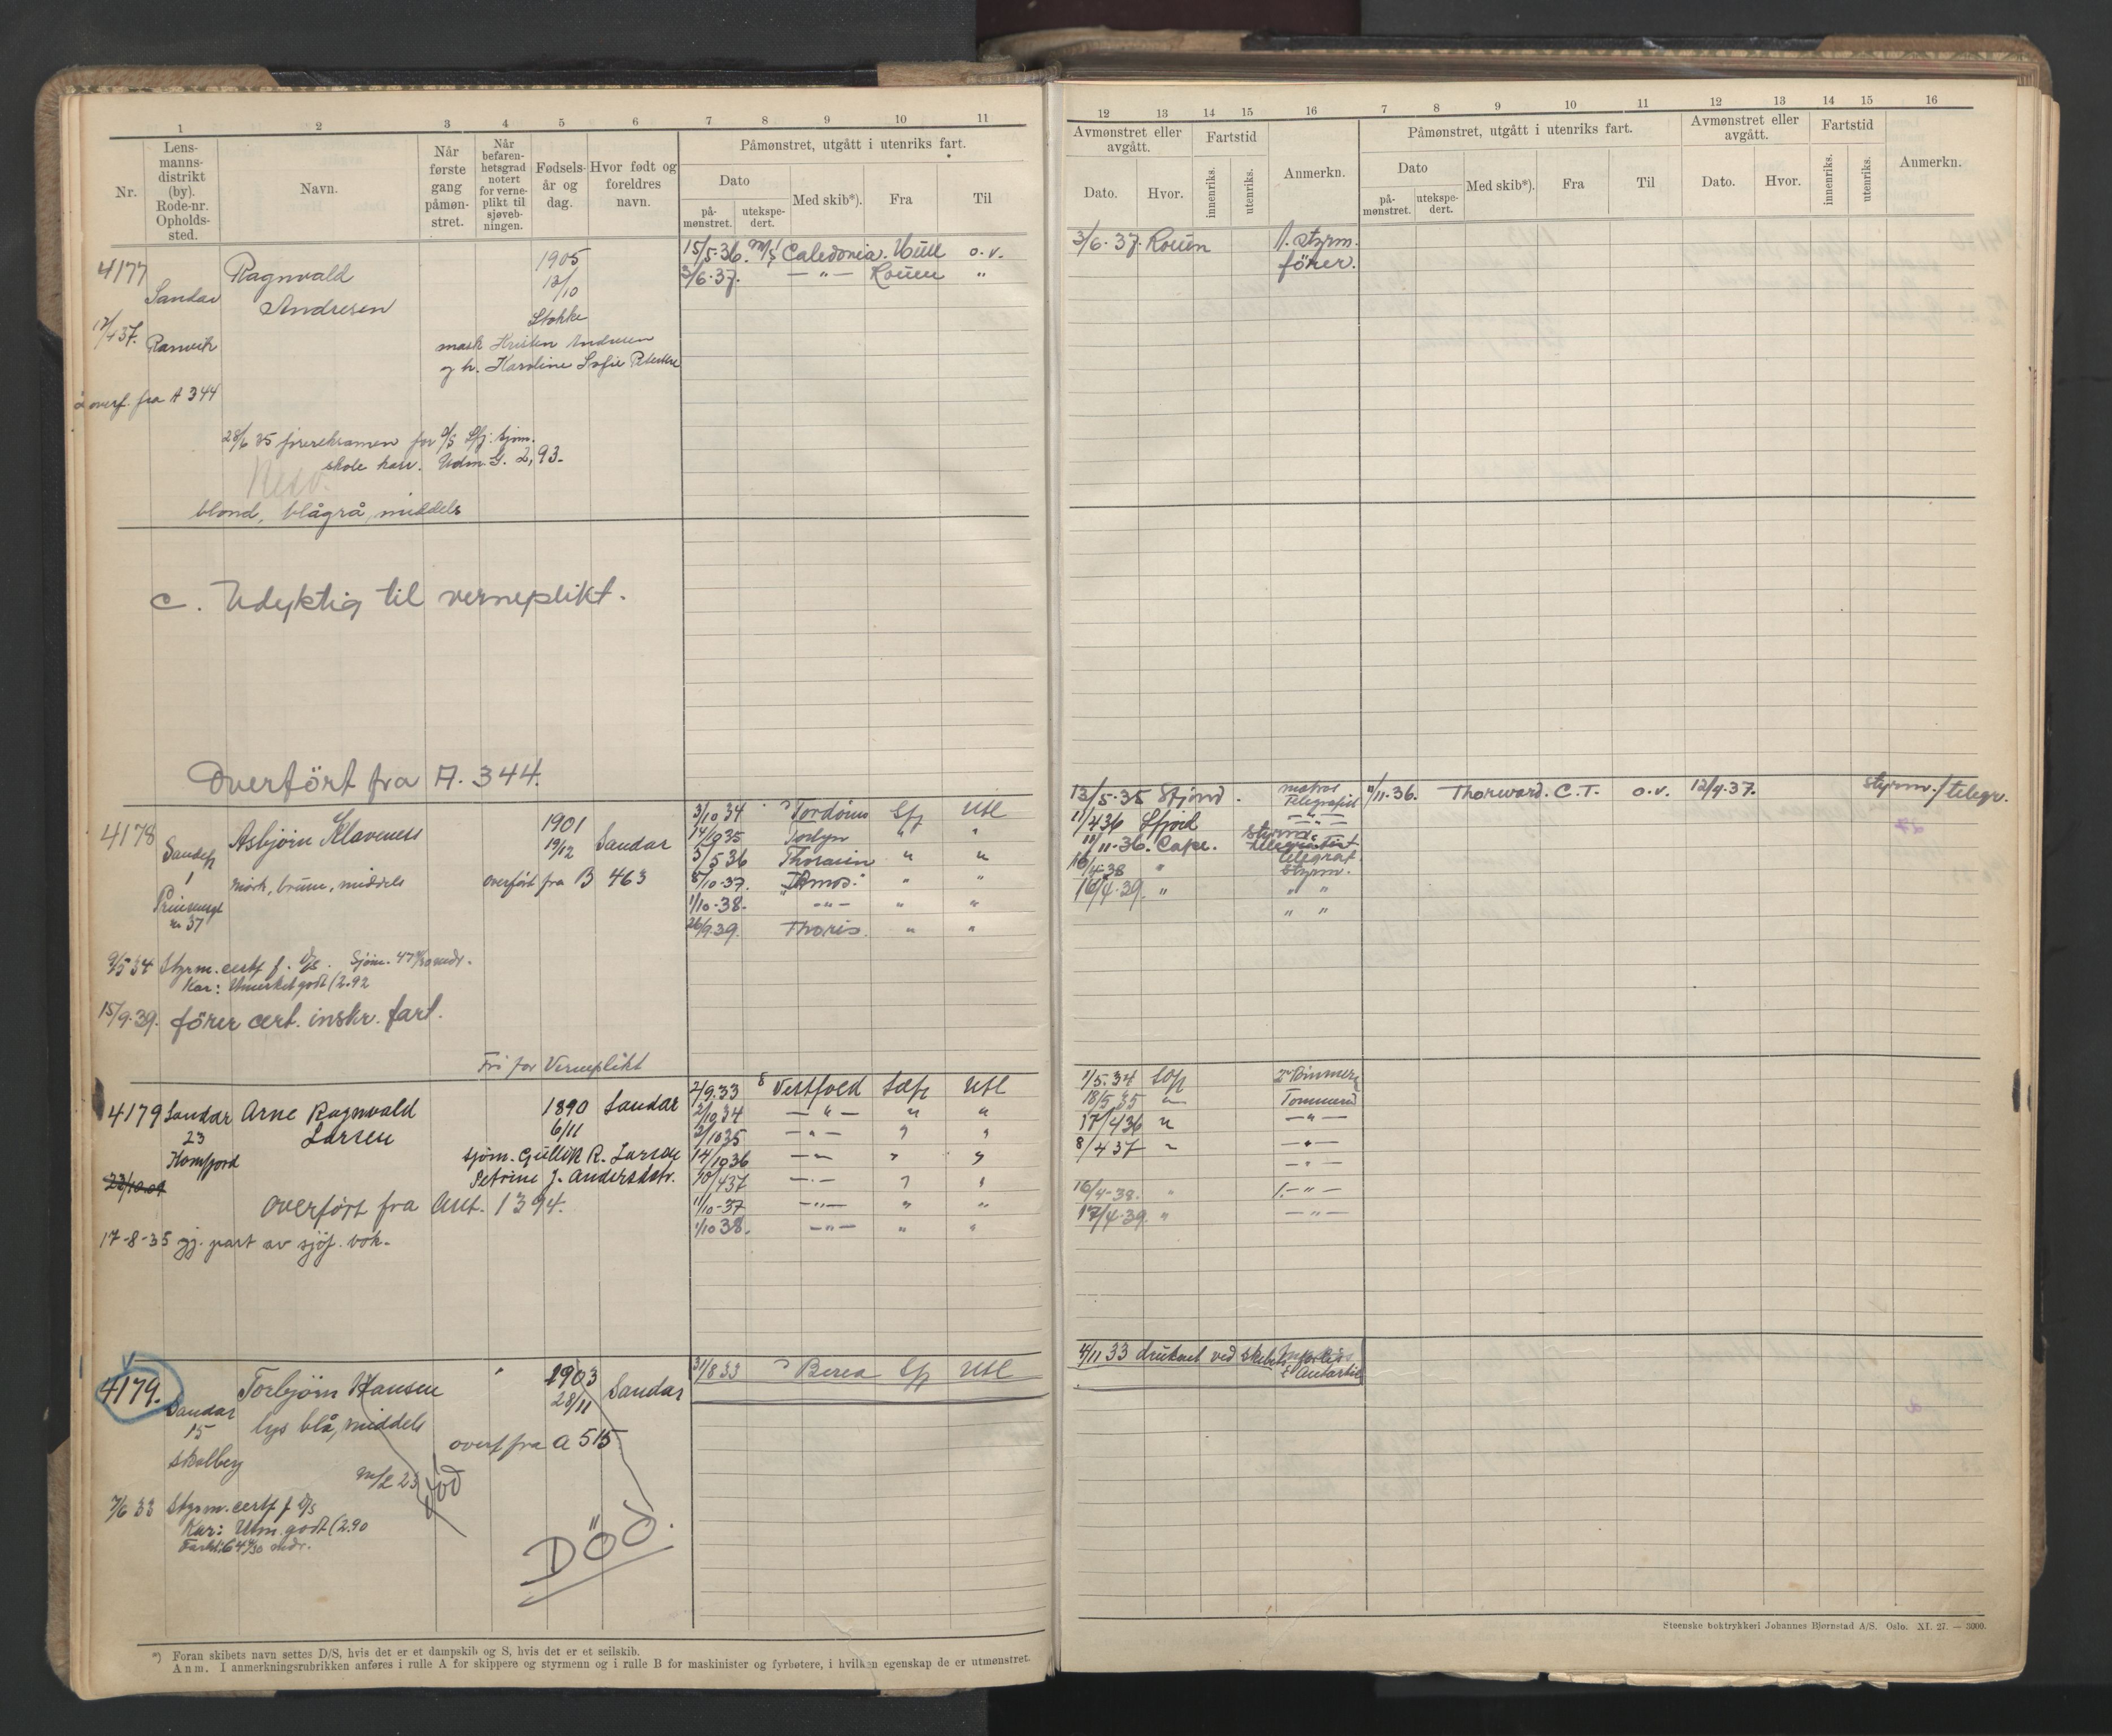 1 2 3 4 5 6 7 8 9 10 11
Nr.
Lens-
manns-
distrikt
(by).
Rode-nr.
Opholds-
sted.
Navn.
Når
første
gang
påmøn-
stret.
Når
befaren-
hetsgrad
notert
for verne-
plikt til
sjøveb-
ningen.
Fødsels-
år og
dag.
Hvor født og
foreldres
navn.
Påmønstret, utgått i utenriks fart.
Dato
på-
mønstret.
utekspe-
dert.
Med skib*).
Fra
Til
4177
Sandar
Ragnvald
Andresen
1905
13/10
Stokke
15/5-36. M/S Caledonia. Hull o.v.
3/6-37. —"— Rouen "
12/4 37. Ranvik
mask Kristen Andresen
og h. Karoline Sofie
overf. fra A 344
28/6 35 førereksamen for D/S Sfj. sjøm.
skole kar. Udm. G. 2,93.
blond, blågrå, middels
c. Udyktig til verneplikt.
Overført fra A. 344.
4178
Sandefj
1
Prinsensgt
nr 37
Asbjørn Klaveness
mørk, brune, middels
1901
19/12
Sandar
overført fra B 463
3/10 34 Tordönn Sfj Utl
14/9 35 Torlyn " "
3/5 36 " "
5/10-37. " "
1/10-38. —"— " "
26/9 39. Thoris " "
9/5 34 Styrm. certf f. D/S. Sjøm. mdr.
Kar: Utmerket godt (2.92
15/9-39. fører cert. inskr. fart.
Fri for Verneplikt
4179
Sandar
23
Arne Ragnvald
Larsen
1890
6/11
Sandar
sjøm. Gullik R. Larsen
Petrine J. Andersdatr.
23/10.04
overført fra Ant. 1394.
17-8-35 gj. part av sjøf. bok.
2/9.33 Vestfold Sæfj Utl
2/10 34 —"— " "
2/10 35 —"— " "
14/9 36 —"— " "
10/4 37 —"— " "
1/10-37 —"— " "
1/10 38. —"— " "
4179.
Sandar
15
Skolberg
Torbjørn Hansen
lys blå, middels
1903
28/11
Sandar
overf fra A 515
M/L 23
død
31/8 33 Berea Sfj Utl
7/6 33 Styrm. certf f D/S
Kar: Utm. godt (2.90
mdr.
DÖD.
*) Foran skibets navn settes D/S, hvis det er et dampskib og S, hvis det er et seilskib.
Anm. I anmerkningsrubrikken anføres i rulle A for skippere og styrmenn og i rulle B for maskinister og fyrbøtere, i hvilken egenskap de er utmønstret.
12 13 14 15 16 7 8 9 10 11 12 13 14 15 16
Avmønstret eller
avgått.
Dato.
Hvor.
Fartstid
innenriks.
utenriks.
Anmerkn.
Påmønstret, utgått i utenriks fart.
Dato
på-
mønstret.
utekspe-
dert.
Med skib*).
Fra
Til
Avmønstret eller
avgått.
Dato.
Hvor.
Fartstid
innenriks.
utenriks.
Anmerkn.
3/6-37. Rouen 1. styrm.
fører.
13/5-35 Sfjord. matros
Telegrafist
11/11-36. Thorward. C.T. o.v. 12/4-37. styrm./telegr.
11/4 36 Sfjord —"—
11/11-36. Cape. styrm.
16/4-38 " telegraf.
styrm.
16/4-39. " " "
" "
1/5.34 Sfj
18/5 35 " Tømmerm
17/4 36 " —"—
8/4 37 " —"—
—"—
16/4-38. " 1. —"—
17/4-39. " —"—
4/11 33 druknet ved skibets forlis
i Antarktis
Steenske boktrykkeri Johannes Bjørnstad A/S. Oslo. XI. 27. — 3000.